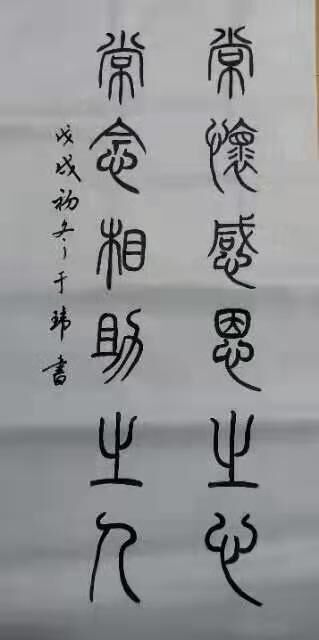 常懷感恩之心
常念相助之人
戊戌初冬于瑋書